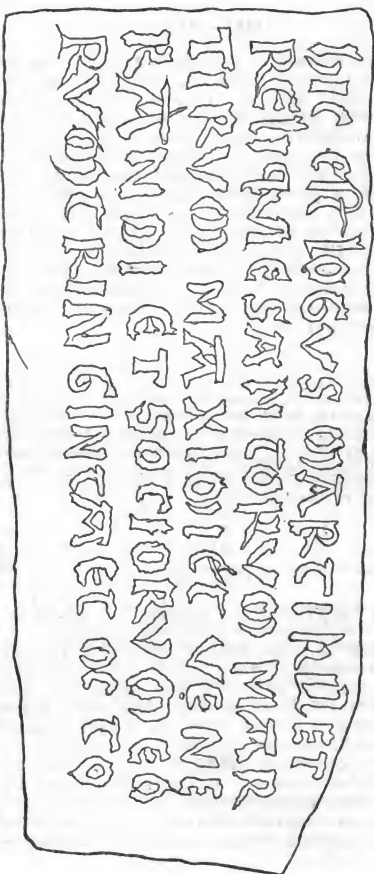 hIC EST LOGVS MARTIRVM ET
RELIQVIE SANTORVM MAR
TIRVM MAXIMI ET VENE
RANDI ET SOCIORVM EO
RVM TRINGINTA ET OCTO